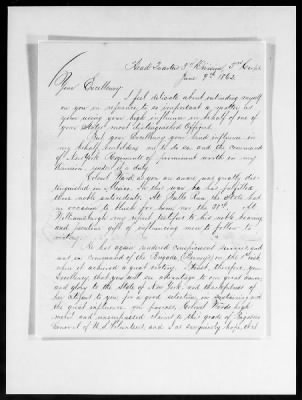 Head Quarters 3rd Division, 3rd Corps
June 9th 1862.
Your Excellency:
I feel delicate about intruding myself
on you in reference to so important a matter, as
your using your high influence in behalf of one of
your State's most distinguished Officers.
But your Excellency's kind influence in
my behalf, emboldens me to do so, and the command
of New York Regiments of prominent worth in my
Division, renders it a duty.
Colonel Ward as you are aware was greatly dis-
tinguished in Mexico. In this war he has fulfilled
those noble antecedents. At Bulls Run the State had
occasion to thank for
Williamsburgh my report testifies to his noble bearing
and positive gift of influencing men to follow to
victory.
He has again rendered conspicuous service, and
was in command of the Brigade (Birney's) on the 1st inst.
when it achieved a great victory. I trust, therefore, your
Excellency, that you will see advantage to our good cause,
and glory to the State of New York, and thankfulness of
her citizens to you, for a good selection, in sustaining with
the great influence you possess, Colonel Ward's high
merit and unsurpassed claims to the grade of Brigadier
General of U.S. Volunteers, and I so sanguinely hope, that